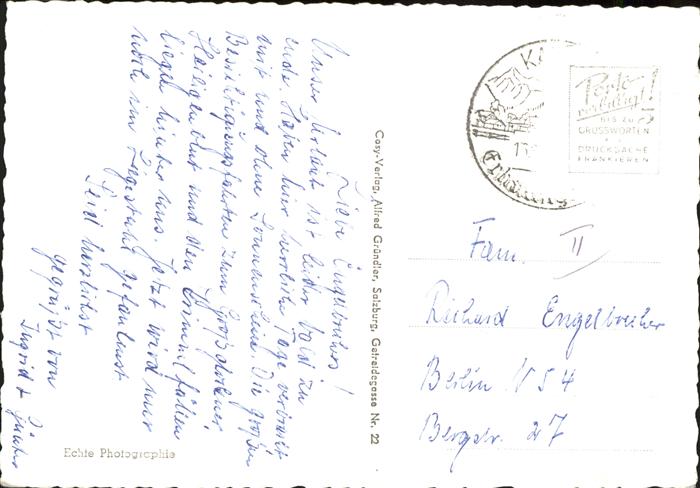 Liebe Engelbrechers!
Unser Urlaub ist leider bald zu
ende. Haben hier herrliche Tage verbracht
mit und ohne Sonnenschein. Die großen
Besichtigungsfahrten zum Großglockner
Heiligenblut und den Krimmlfällen
liegen hinter uns. Jetzt wird nur
noch im Liegestuhl gefaulenzt
Seid herzlichst
gegrüßt von
Ingrid + Günter
Echte Photographie
Cosy-Verlag, Alfred Gründler, Salzburg, Getreidegasse Nr. 22
Porto
verbilligt!
BIS ZU
5
GRUSSWORTEN
DRUCKSACHE
FRANKIEREN
Fam. II
Richard Engelbrecher
Berlin N 54
Bergstr. 27